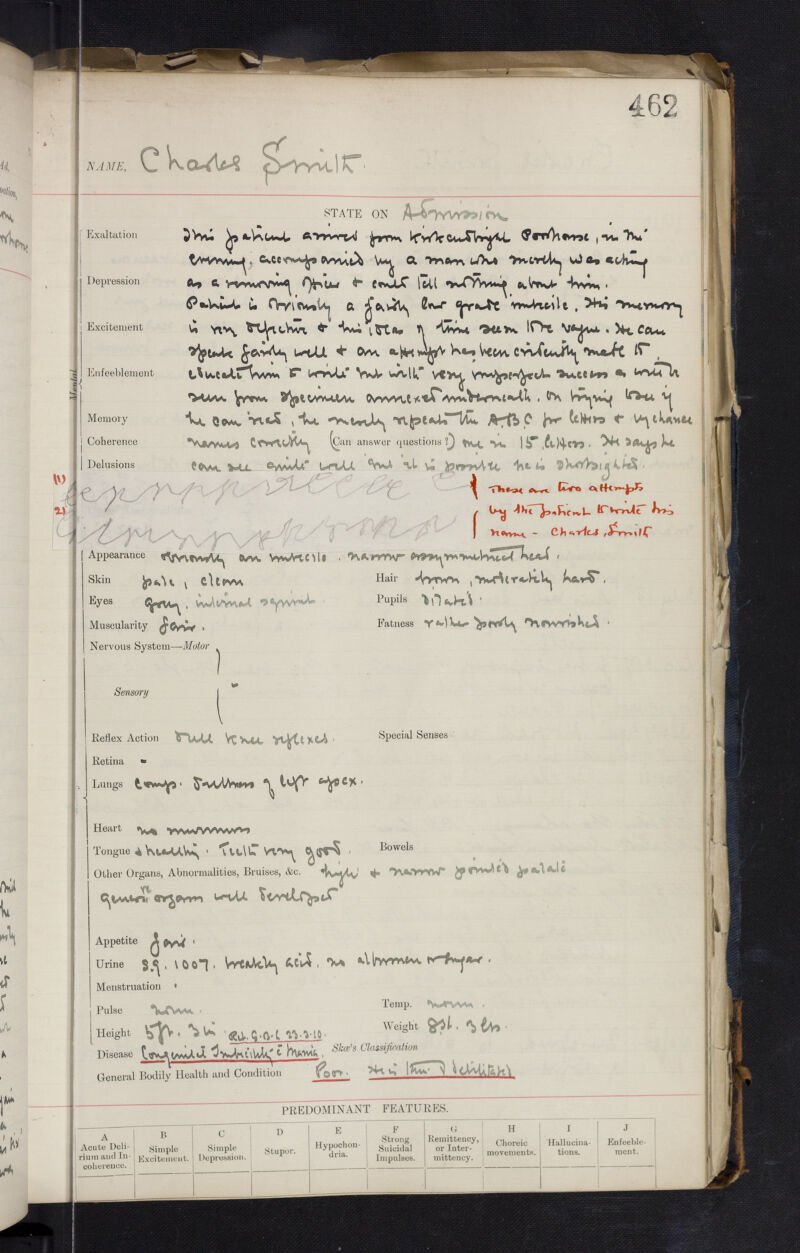 462
NAME, Charles Smith.
STATE ON Admission
Exaltation This patient arrived from Kirkcudbright Poorhouse, in the
evening, accompanied by a man who merely was acting
Depression as a removing officer & could tell nothing about him.
Patient is obviously a fairly low grade imbecile, His memory
Excitement is very defective & his ideas of time seem to be vague. He can
speak fairly well & an attempt has been evidently made to
Enfeeblement educate him to write but with very imperfect success as will be
seen from specimen annexed underneath. On trying to see if
Memory he can read, he merely repeats the A.B.C for letters & by chance
Coherence names correctly (Can answer questions?) one in 15 letters. He says he
Delusions can see quite well but it is possible he is shortsighted.
(1) These are two attempts
2) by the patient to write his
name - Charles Smith
Appearance obviously an imbecile. narrow assymmetrical head.
Skin pale, clean Hair brown, moderately hard.
Eyes grey, internal squint Pupils dilated.
Muscularity fair. Fatness rather poorly nourished.
Nervous System—Motor
Sensory
Reflex Action Dull knee reflexes. Special Senses
Retina -
Lungs Comp. dullness of left apex.
Heart no murmurs
Tongue healthy. Teeth very good. Bowels
Other Organs, Abnormalities, Bruises, &c. high & narrow pointed palate
organs well developed
Appetite fair.
Urine S.g. 1007. weakly acid. no albumen or sugar.
Menstruation
Pulse norm. Temp. norm.
Height 5ft. 3 in G.B.C 23.3.10 Weight 8st. 3 lbs.
Disease Congenital Imbecility c Mania. Skæ's Classification
General Bodily Health and Condition Poor. He is thin & debilitated
PREDOMINANT FEATURES.
A B C D E F G H I J
Acute Delirium and Incoherence. Simple Excitement. Simple Depression. Stupor. Hypochondria. Strong Suicidal Impulses. Remittency, or Intermittency. Choreic movements. Hallucinations. Enfeeblement.